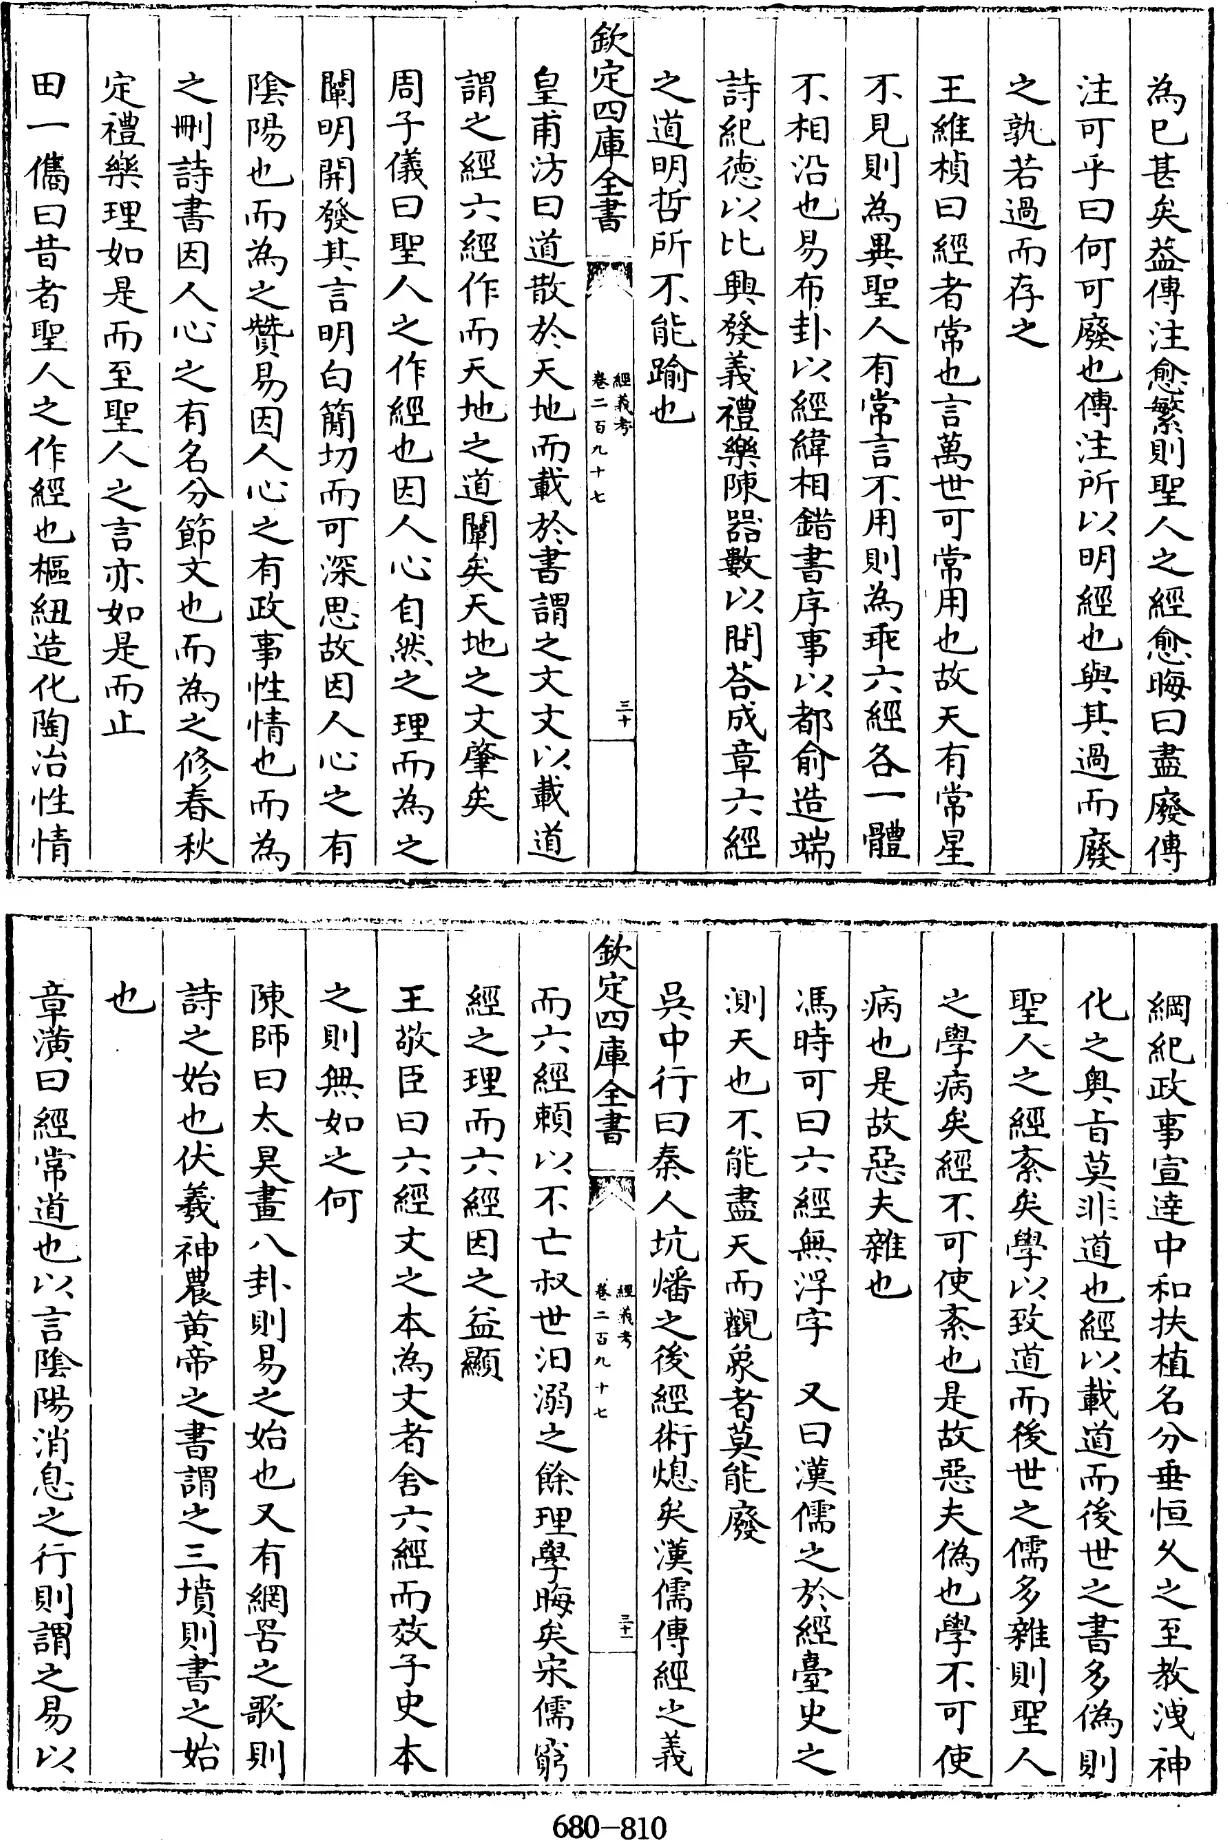 為已甚矣葢傳注愈繁則聖人之經愈晦曰盡廢傳
注可乎曰何可廢也傳注所以明經也與其過而廢
之孰若過而存之
王維楨曰經者常也言萬世可常用也故天有常星
不見則為異聖人有常言不用則為乖六經各一體
不相沿也易布卦以經緯相錯書序事以都俞造端
詩紀德以比興發義禮樂陳器數以問荅成章六經
之道明哲所不能踰也
欽定四庫全書
經義考
卷二百九十七
三十
皇甫汸曰道散於天地而載於書謂之文文以載道
謂之經六經作而天地之道闡矣天地之文肇矣
周子儀曰聖人之作經也因人心自然之理而為之
闡明開發其言明白簡切而可深思故因人心之有
陰陽也而為之贊易因人心之有政事性情也而為
之刪詩書因人心之有名分節文也而為之修春秋
定禮樂理如是而至聖人之言亦如是而止
田一儁曰昔者聖人之作經也樞紐造化陶冶性情
綱紀政事宣達中和扶植名分垂恒久之至教洩神
化之奥㫖莫非道也經以載道而後世之書多偽則
聖人之經紊矣學以致道而後世之儒多雜則聖人
之學病矣經不可使紊也是故惡夫偽也學不可使
病也是故惡夫雜也
馮時可曰六經無浮字　又曰漢儒之於經臺史之
測天也不能盡天而觀象者莫能廢
吳中行曰秦人坑燔之後經術熄矣漢儒傳經之義
欽定四庫全書
經義考
卷二百九十七
三十一
而六經頼以不亡叔世汩溺之餘理學晦矣宋儒窮
經之理而六經因之益顯
王敬臣曰六經文之本為文者舍六經而效子史本
之則無如之何
陳師曰太昊畫八卦則易之始也又有網罟之歌則
詩之始也伏羲神農黄帝之書謂之三墳則書之始
也
章潢曰經常道也以言陰陽消息之行則謂之易以
680-810